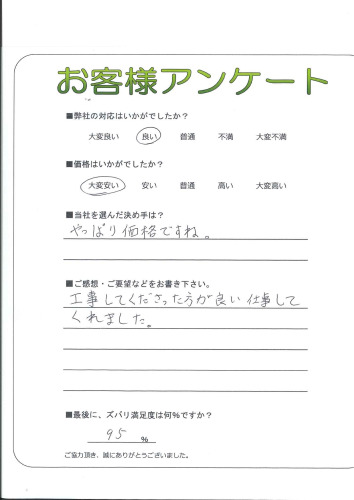 お客様アンケート
■弊社の対応はいかがでしたか?
大変良い 良い 普通 不満 大変不満
■価格はいかがでしたか?
大変安い 安い 普通 高い 大変高い
■当社を選んだ決め手は?
やっぱり価格ですね。
■ご感想・ご要望などをお書き下さい。
工事してくださった方が良い仕事して
くれました。
■最後に、ズバリ満足度は何%ですか?
95 %
ご協力頂き、誠にありがとうございました。